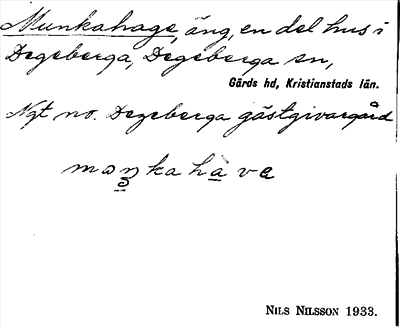 Munkahage, äng, en del hus i
Degeberga, Degeberga sn,
Gärds hd, Kristianstads län.
Ngt no. Degeberga gästgivaregård
NILS NILSSON 1933.